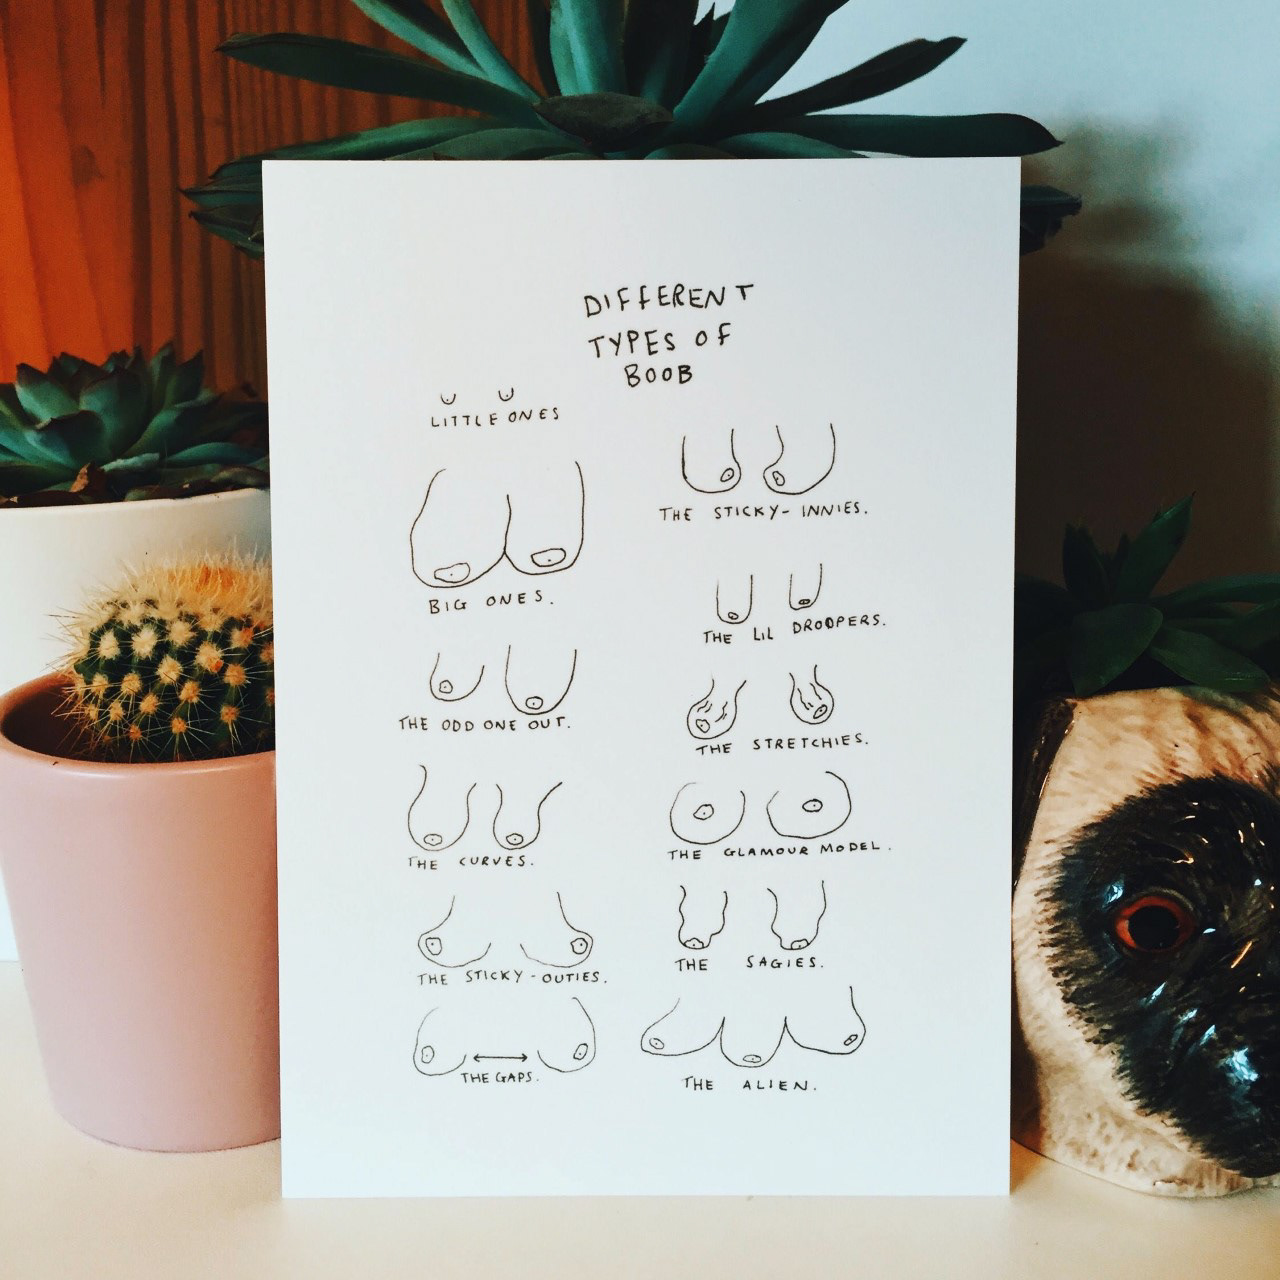 DIFFERENT
TYPES OF
BOOB
LITTLE ONES
BIG ONES.
THE ODD ONE OUT.
THE CURVES.
THE STICKY-OUTIES.
THE GAPS.
THE STICKY-INNIES.
THE LIL DROOPERS.
THE STRETCHIES.
THE GLAMOUR MODEL.
THE SAGIES.
THE ALIEN.